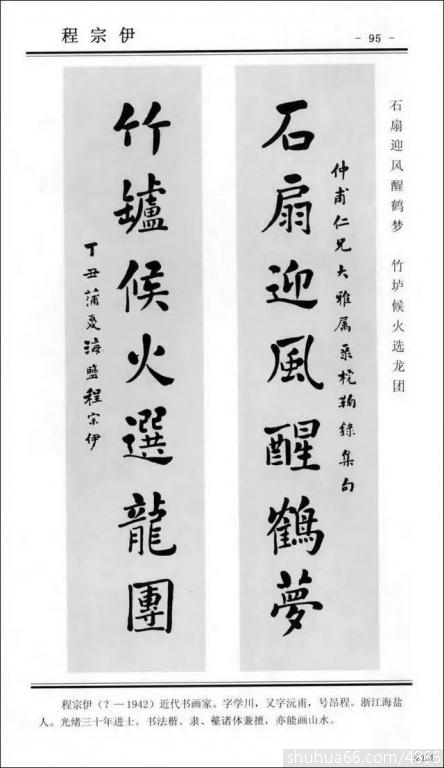 程宗伊
- 95 -
石扇迎风醒鹤梦　竹垆候火选龙团
仲甫仁兄大雅属采梡鞠錄集句
石扇迎風醒鶴夢
竹罏候火選龍團
丁丑蒲夏海鹽程宗伊
程宗伊（？—1942）近代书画家。字学川，又字沅甫，号昂程。浙江海盐
人。光绪三十年进士。书法楷、隶、篆诸体兼擅，亦能画山水。